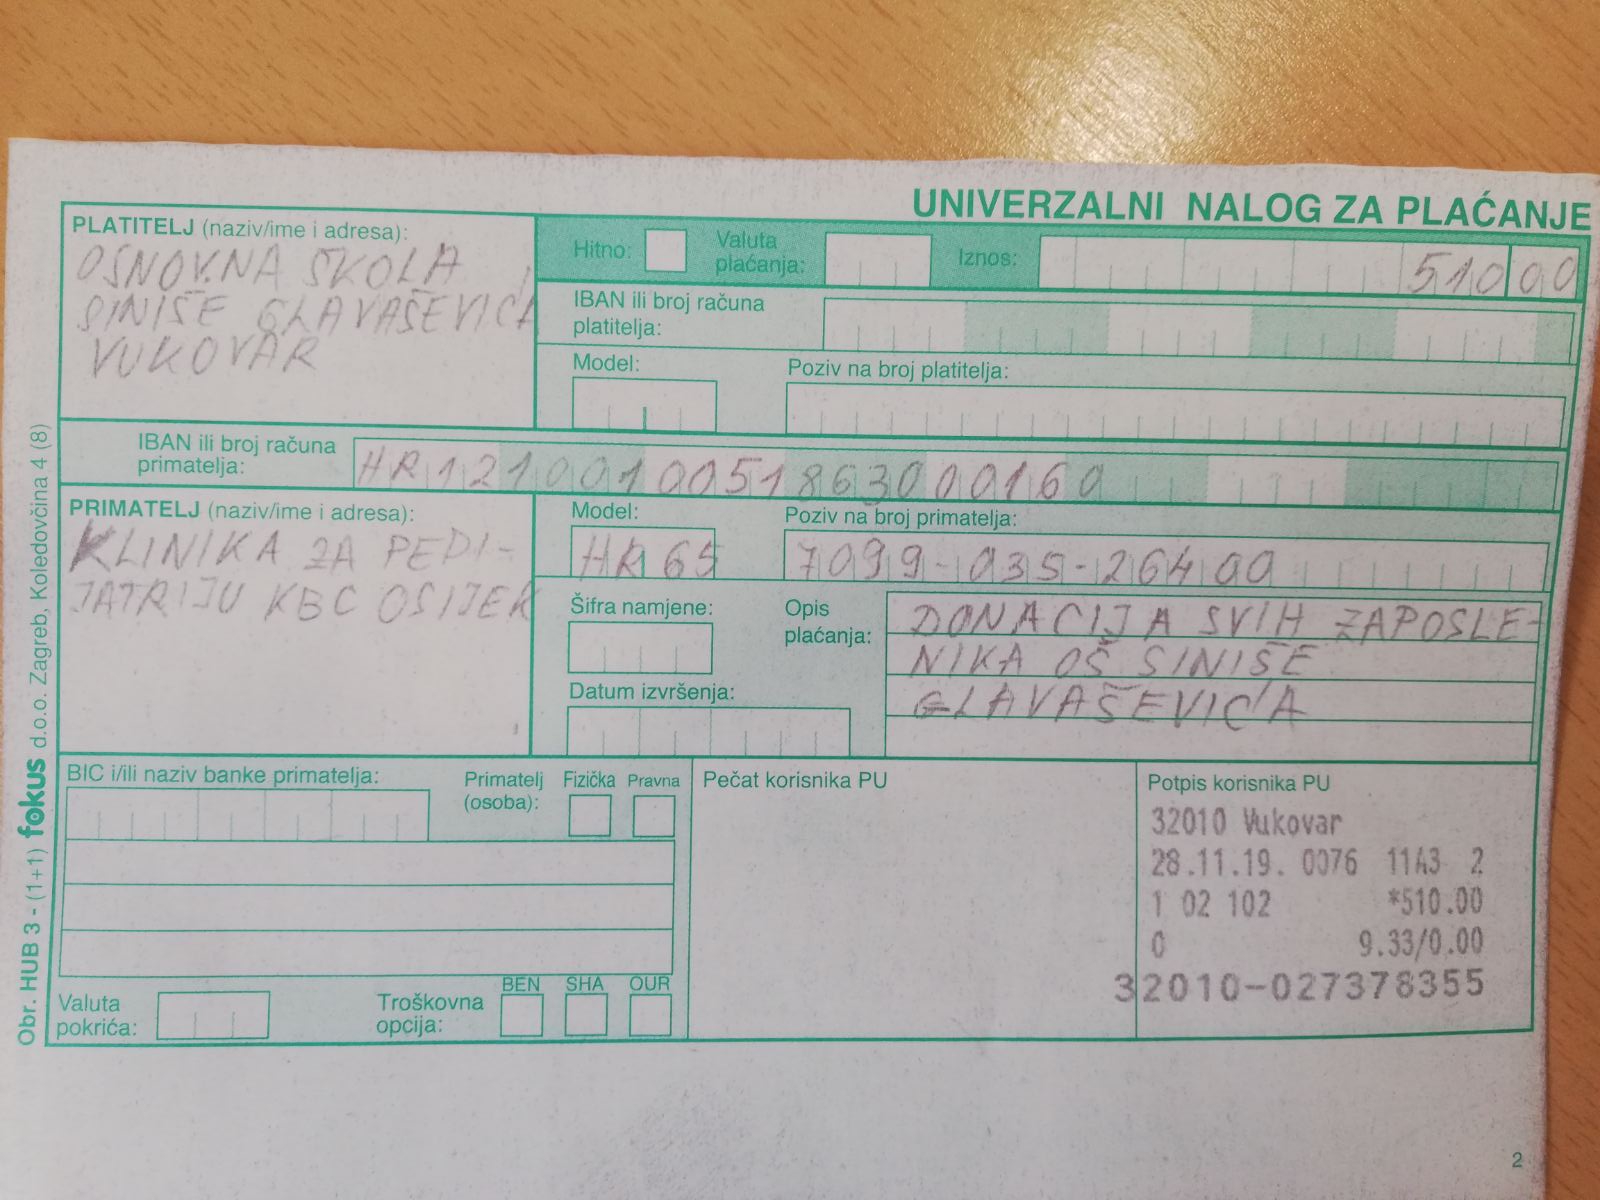 UNIVERZALNI NALOG ZA PLAĆANJE
PLATITELJ (naziv/ime i adresa):
OSNOVNA ŠKOLA
SINIŠE GLAVAŠEVIĆA
VUKOVAR
Hitno:
Valuta plaćanja:
Iznos: 510 00
IBAN ili broj računa
platitelja:
Model:
Poziv na broj platitelja:
IBAN ili broj računa
primatelja:
HR1210010051863000160
PRIMATELJ (naziv/ime i adresa):
KLINIKA ZA PEDI-
JATRIJU KBC OSIJEK
Model:
HR 65
Poziv na broj primatelja:
7099-035-26400
Šifra namjene:
Opis
plaćanja:
DONACIJA SVIH ZAPOSLE-
NIKA OŠ SINIŠE
GLAVAŠEVIĆA
Datum izvršenja:
BIC i/ili naziv banke primatelja:
Primatelj
(osoba):
Fizička
Pravna
Valuta
pokrića:
Troškovna
opcija:
BEN
SHA
OUR
Pečat korisnika PU
Potpis korisnika PU
32010 Vukovar
28.11.19. 0076 11A3 2
1 02 102 *510.00
0 9.33/0.00
32010-027378355
Obr. HUB 3 - (1+1) fokus d.o.o. Zagreb, Koledovčina 4 (8)
2